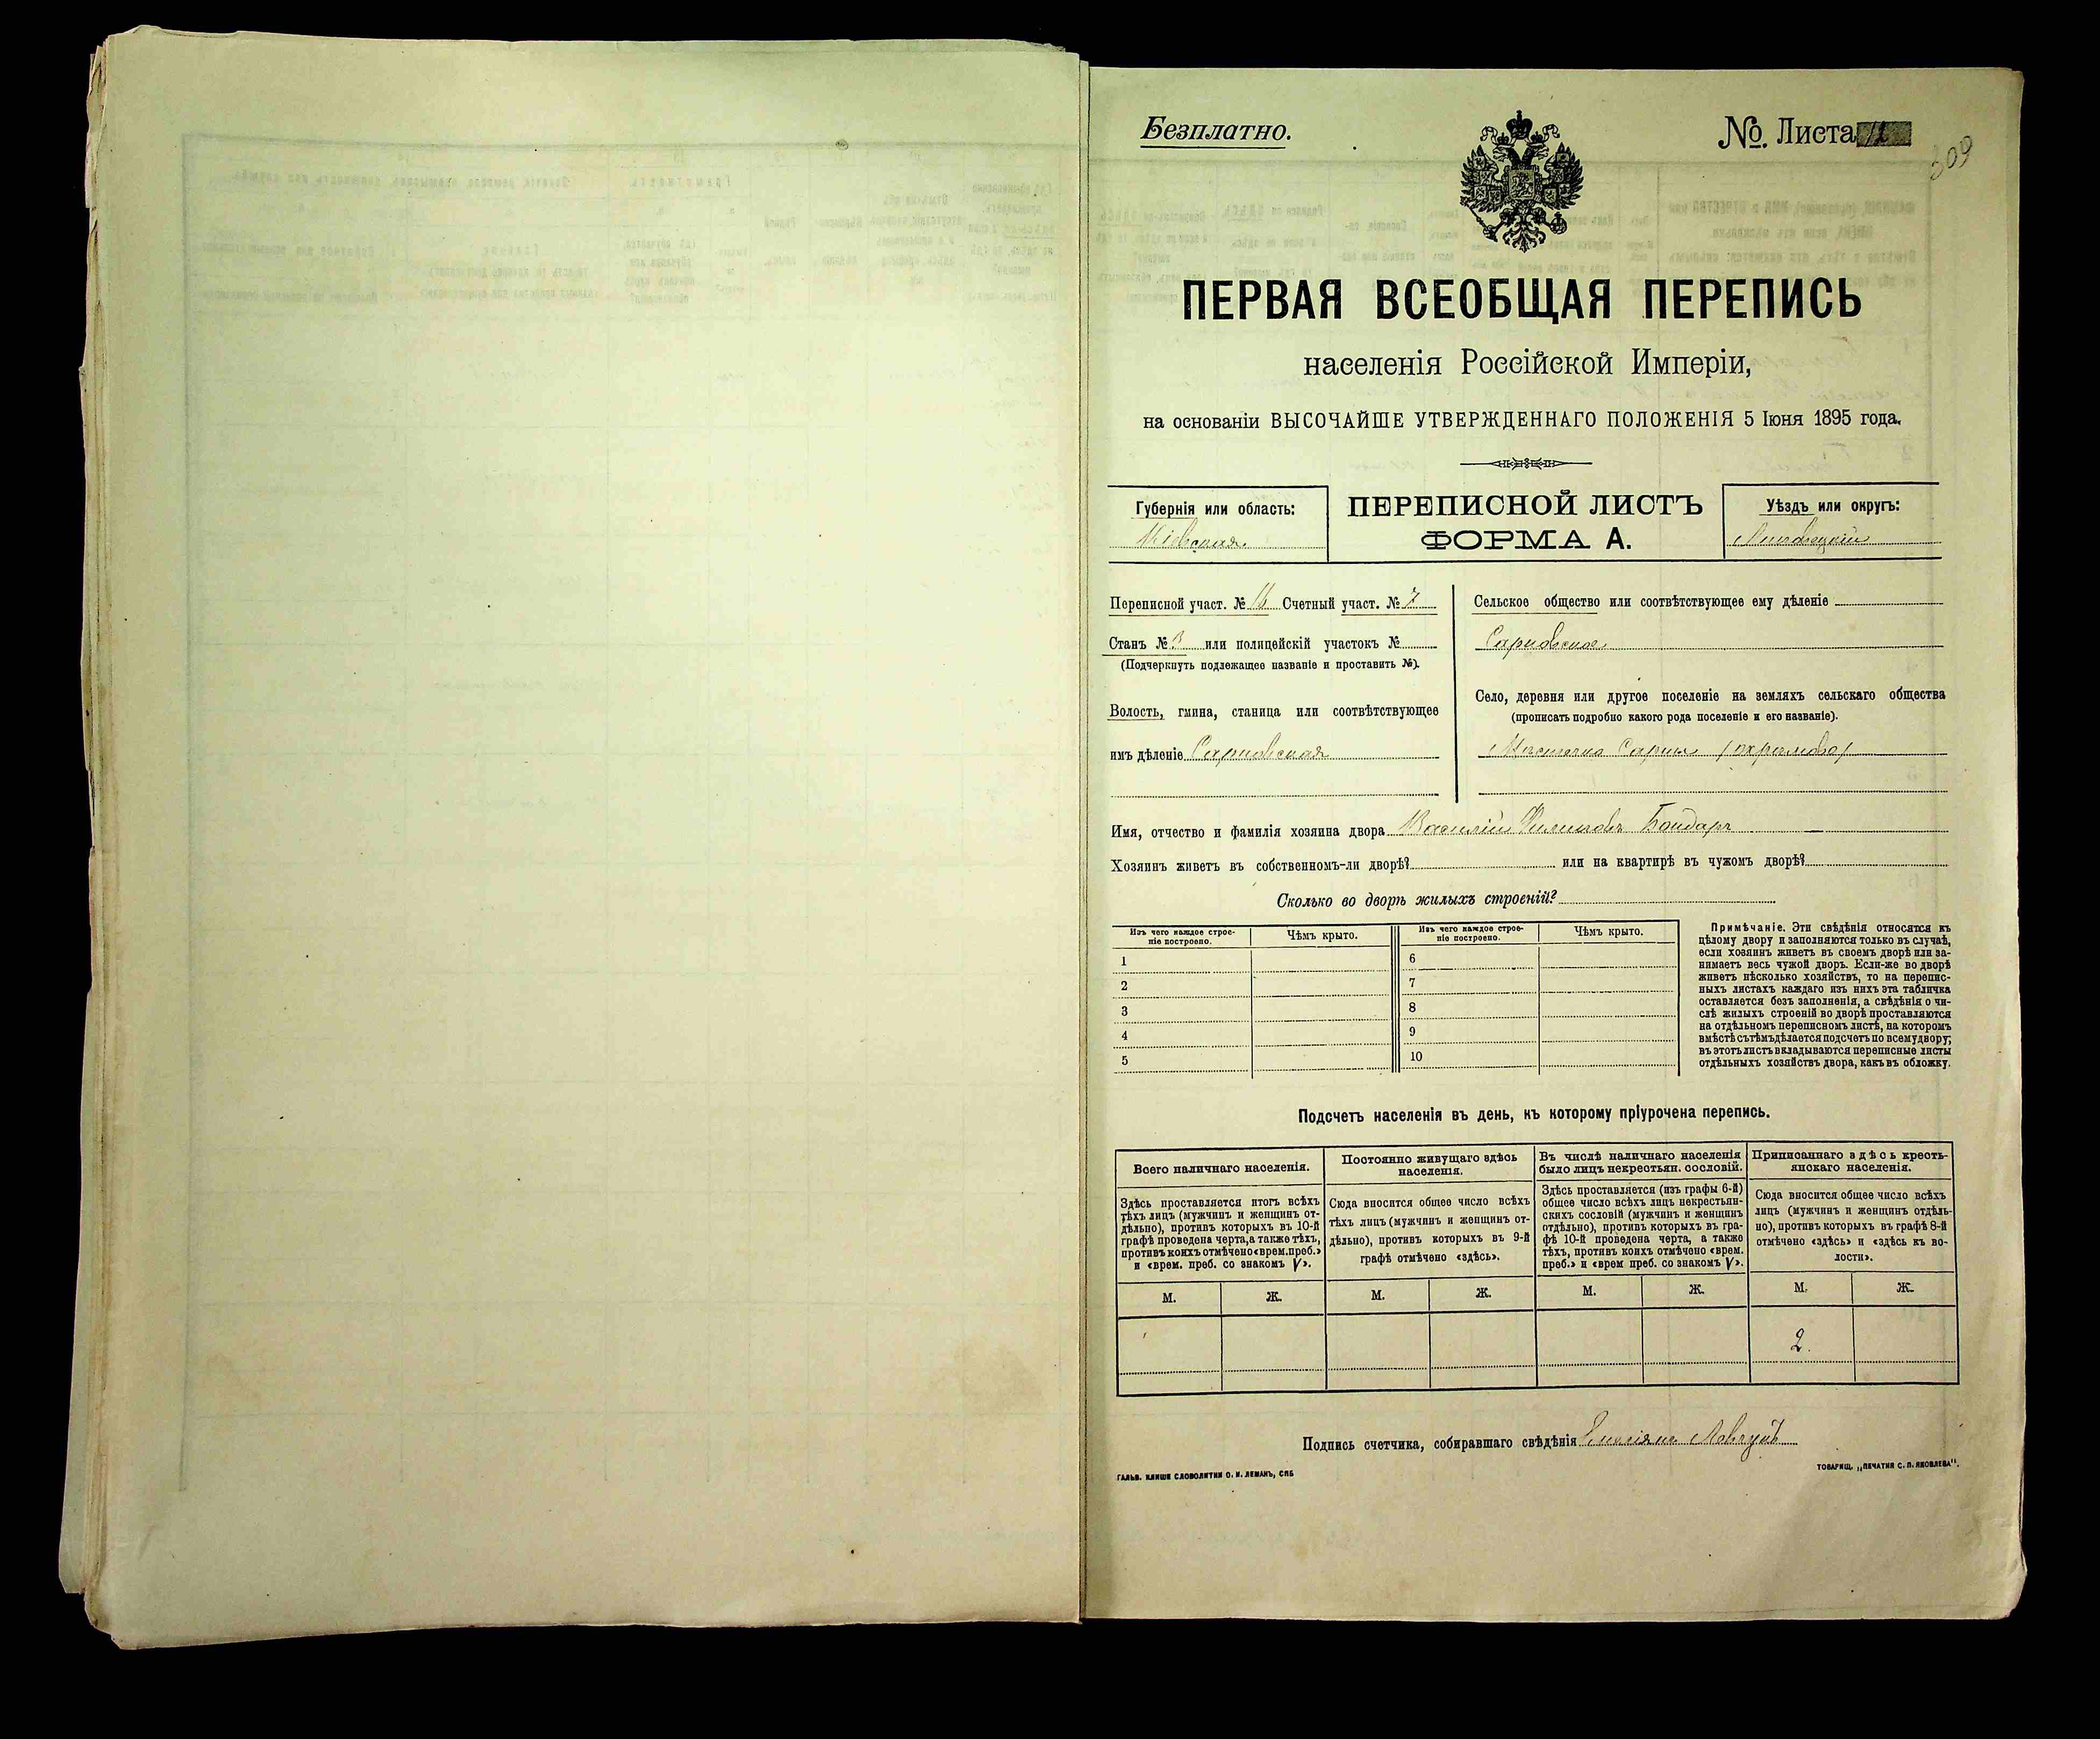 Безплатно.
№. Листа
309
ПЕРВАЯ ВСЕОБЩАЯ ПЕРЕПИСЬ
населенія Россійской Имперіи,
на основаніи ВЫСОЧАЙШЕ УТВЕРЖДЕННАГО ПОЛОЖЕНІЯ 5 Іюня 1895 года.
Губернія или область:
Кіевская
ПЕРЕПИСНОЙ ЛИСТЪ
ФОРМА А.
Уѣздъ или округъ:
Липовецкій
Переписной участ. № 16 Счетный участ. № 7
Станъ № 3 или полицейскій участокъ №
(Подчеркнуть подлежащее названіе и проставить №).
Волость, гмина, станица или соотвѣтствующее
имъ дѣленіе Сарновская
Сельское общество или соотвѣтствующее ему дѣленіе
Сарновское
Село, деревня или другое поселеніе на земляхъ сельскаго общества
(прописать подробно какого рода поселеніе и его названіе).
Мѣстечко Сарны
Имя, отчество и фамилія хозяина двора Василій Филиповъ Бондарь
Хозяинъ живетъ въ собственномъ-ли дворѣ? или на квартирѣ въ чужомъ дворѣ?
Сколько во дворѣ жилыхъ строеній?
Изъ чего каждое строе-
ніе построено.
Чѣмъ крыто.
1
2
3
4
5
Изъ чего каждое строе-
ніе построено.
Чѣмъ крыто.
6
7
8
9
10
Примѣчаніе. Эти свѣдѣнія относятся къ
цѣлому двору и заполняются только въ случаѣ,
если хозяинъ живетъ въ своемъ дворѣ или за-
нимаетъ весь чужой дворъ. Если-же во дворѣ
живетъ нѣсколько хозяйствъ, то на перепис-
ныхъ листахъ каждаго изъ нихъ эта табличка
оставляется безъ заполненія, а свѣдѣнія о чи-
слѣ жилыхъ строеній во дворѣ проставляются
на отдѣльномъ переписномъ листѣ, на которомъ
вмѣстѣ съ тѣмъ дѣлается подсчетъ по всему двору;
въ этотъ листъ вкладываются переписные листы
отдѣльныхъ хозяйствъ двора, какъ въ обложку.
Подсчетъ населенія въ день, къ которому пріурочена перепись.
Всего наличнаго населенія.
Здѣсь проставляется итогъ всѣхъ
тѣхъ лицъ (мужчинъ и женщинъ от-
дѣльно), противъ которыхъ въ 10-й
графѣ проведена черта, а также тѣхъ,
противъ коихъ отмѣчено «врем. преб.»
и «врем. преб. со знакомъ V».
М.
Ж.
Постоянно живущаго здѣсь
населенія.
Сюда вносится общее число всѣхъ
тѣхъ лицъ (мужчинъ и женщинъ от-
дѣльно), противъ которыхъ въ 9-й
графѣ отмѣчено «здѣсь».
М.
Ж.
Въ числѣ наличнаго населенія
было лицъ некрестьян. сословій.
Здѣсь проставляется (изъ графы 6-й)
общее число всѣхъ лицъ некрестьян-
скихъ сословій (мужчинъ и женщинъ
отдѣльно), противъ которыхъ въ гра-
фѣ 10-й проведена черта, а также
тѣхъ, противъ коихъ отмѣчено «врем.
преб.» и «врем преб. со знакомъ V».
М.
Ж.
Приписаннаго здѣсь кресть-
янскаго населенія.
Сюда вносится общее число всѣхъ
лицъ (мужчинъ и женщинъ отдѣль-
но), противъ которыхъ въ графѣ 8-й
отмѣчено «здѣсь» и «здѣсь къ во-
лости».
М.
Ж.
2
Подпись счетчика, собиравшаго свѣдѣнія
ГАЛЬВ. КЛИШЕ СЛОВОЛИТНИ О. И. ЛЕМАНЪ, СПБ
ТОВАРИЩ. „ПЕЧАТНЯ С. П. ЯКОВЛЕВА".